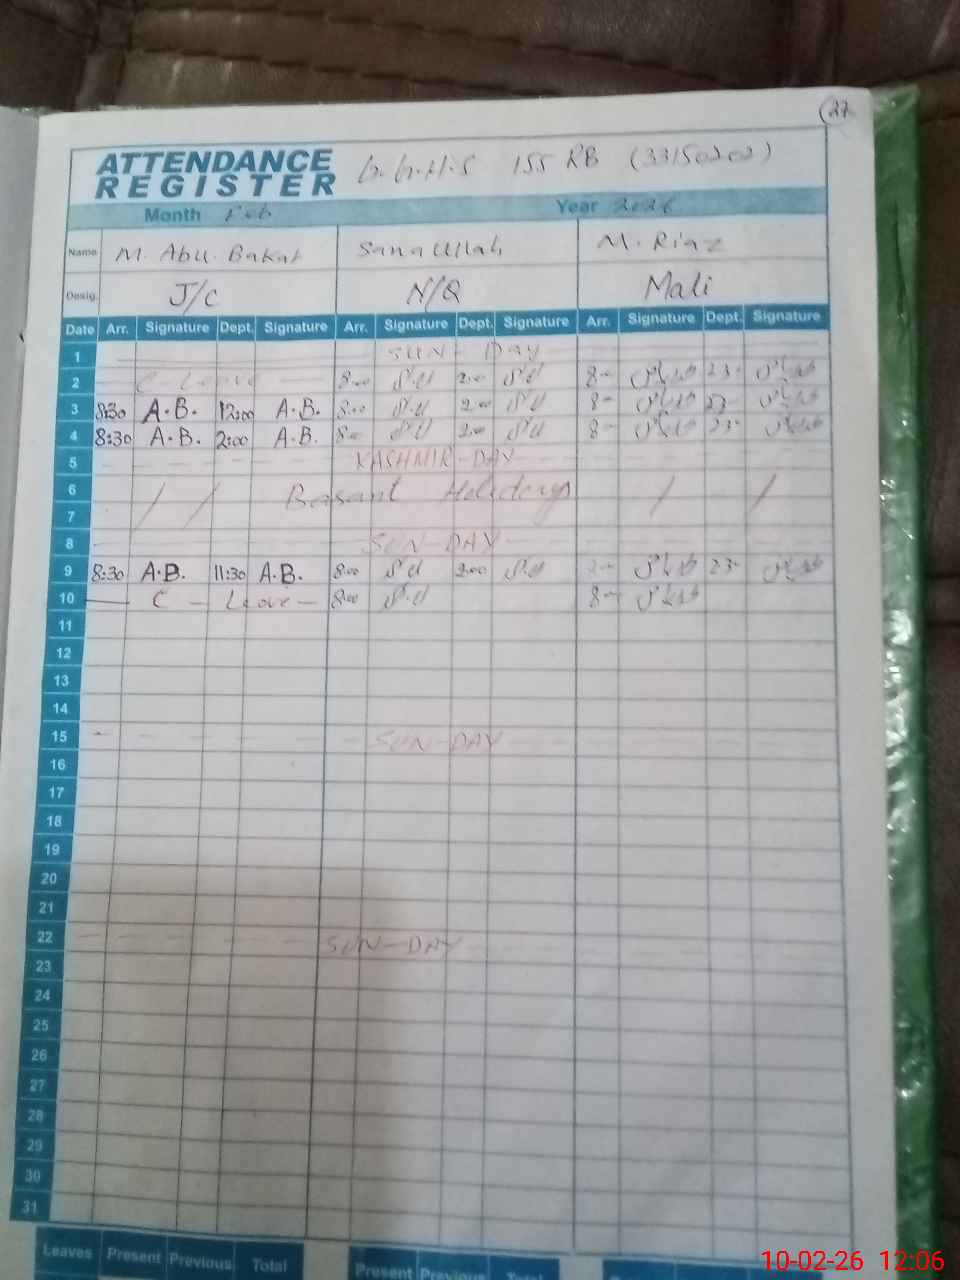 27
ATTENDANCE REGISTER G.G.H.S 155 RB (33150202)
Month Feb Year 2026
Name M. Abu. Bakar Sana Ullah M. Riaz
Desig. J/C N/Q Mali
Date Arr. Signature Dept. Signature Arr. Signature Dept. Signature Arr. Signature Dept. Signature
1 SUN-DAY
2 C-Leave 8:00 2:00 8-
3 8:30 A.B. 12:00 A.B. 8:00 2:00 8-
4 8:30 A.B. 2:00 A.B. 8:00 2:00 8-
5 KASHMIR-DAY
6 Basant Holidays
7
8 SUN-DAY
9 8:30 A.B. 11:30 A.B. 8:00 2:00
10 C-Leave- 8:00 8-
11
12
13
14
15 SUN-DAY
16
17
18
19
20
21
22 SUN-DAY
23
24
25
26
27
28
29
30
31
Leaves Present Previous Total Present Previous Total
10-02-26 12:06